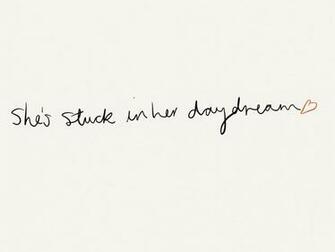 She's stuck in her daydream♡